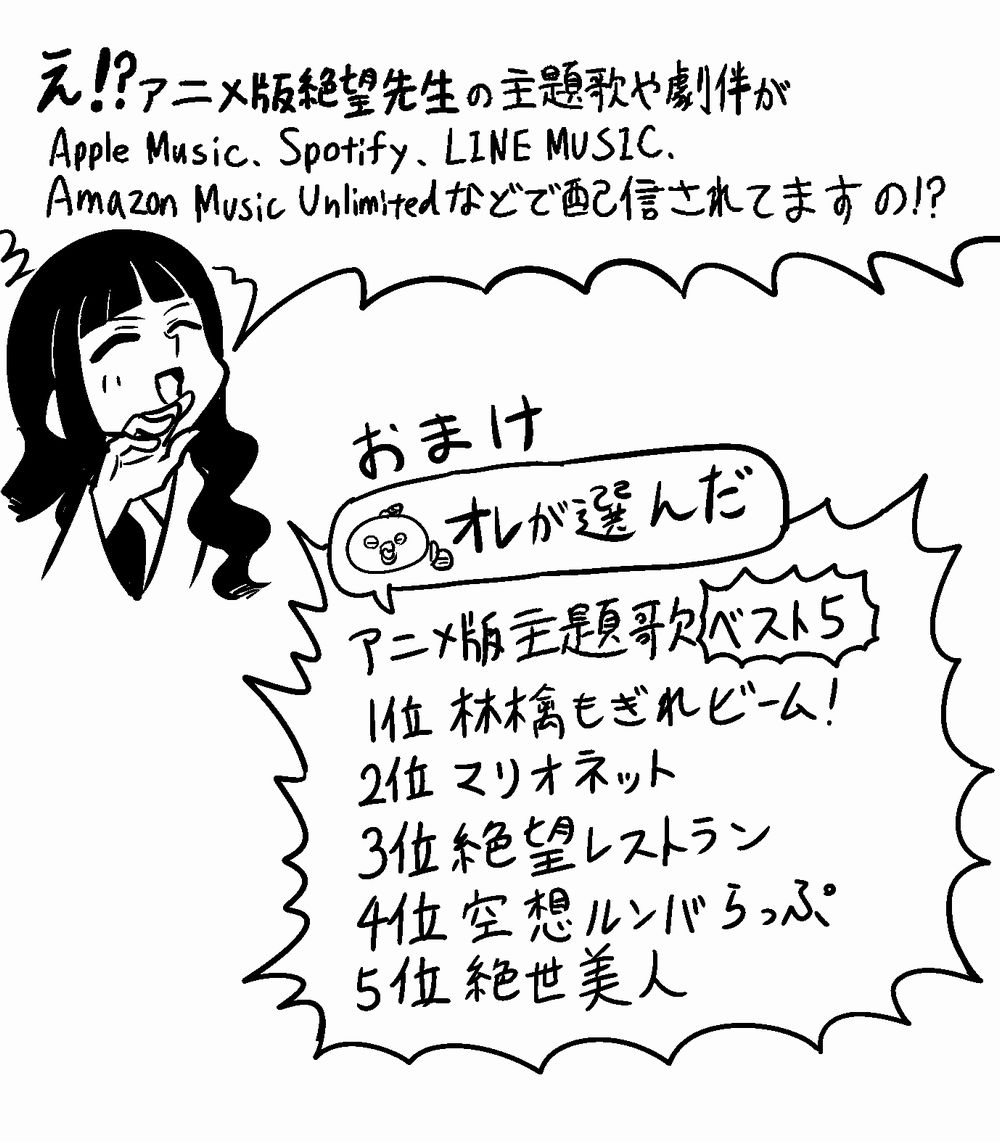 え!?アニメ版絶望先生の主題歌や劇伴が
Apple Music、Spotify、LINE MUSIC、
Amazon Music Unlimitedなどで配信されてますの!?
おまけ
オレが選んだ
アニメ版主題歌ベスト5
1位 林檎もぎれビーム!
2位 マリオネット
3位 絶望レストラン
4位 空想ルンバらっぷ
5位 絶世美人